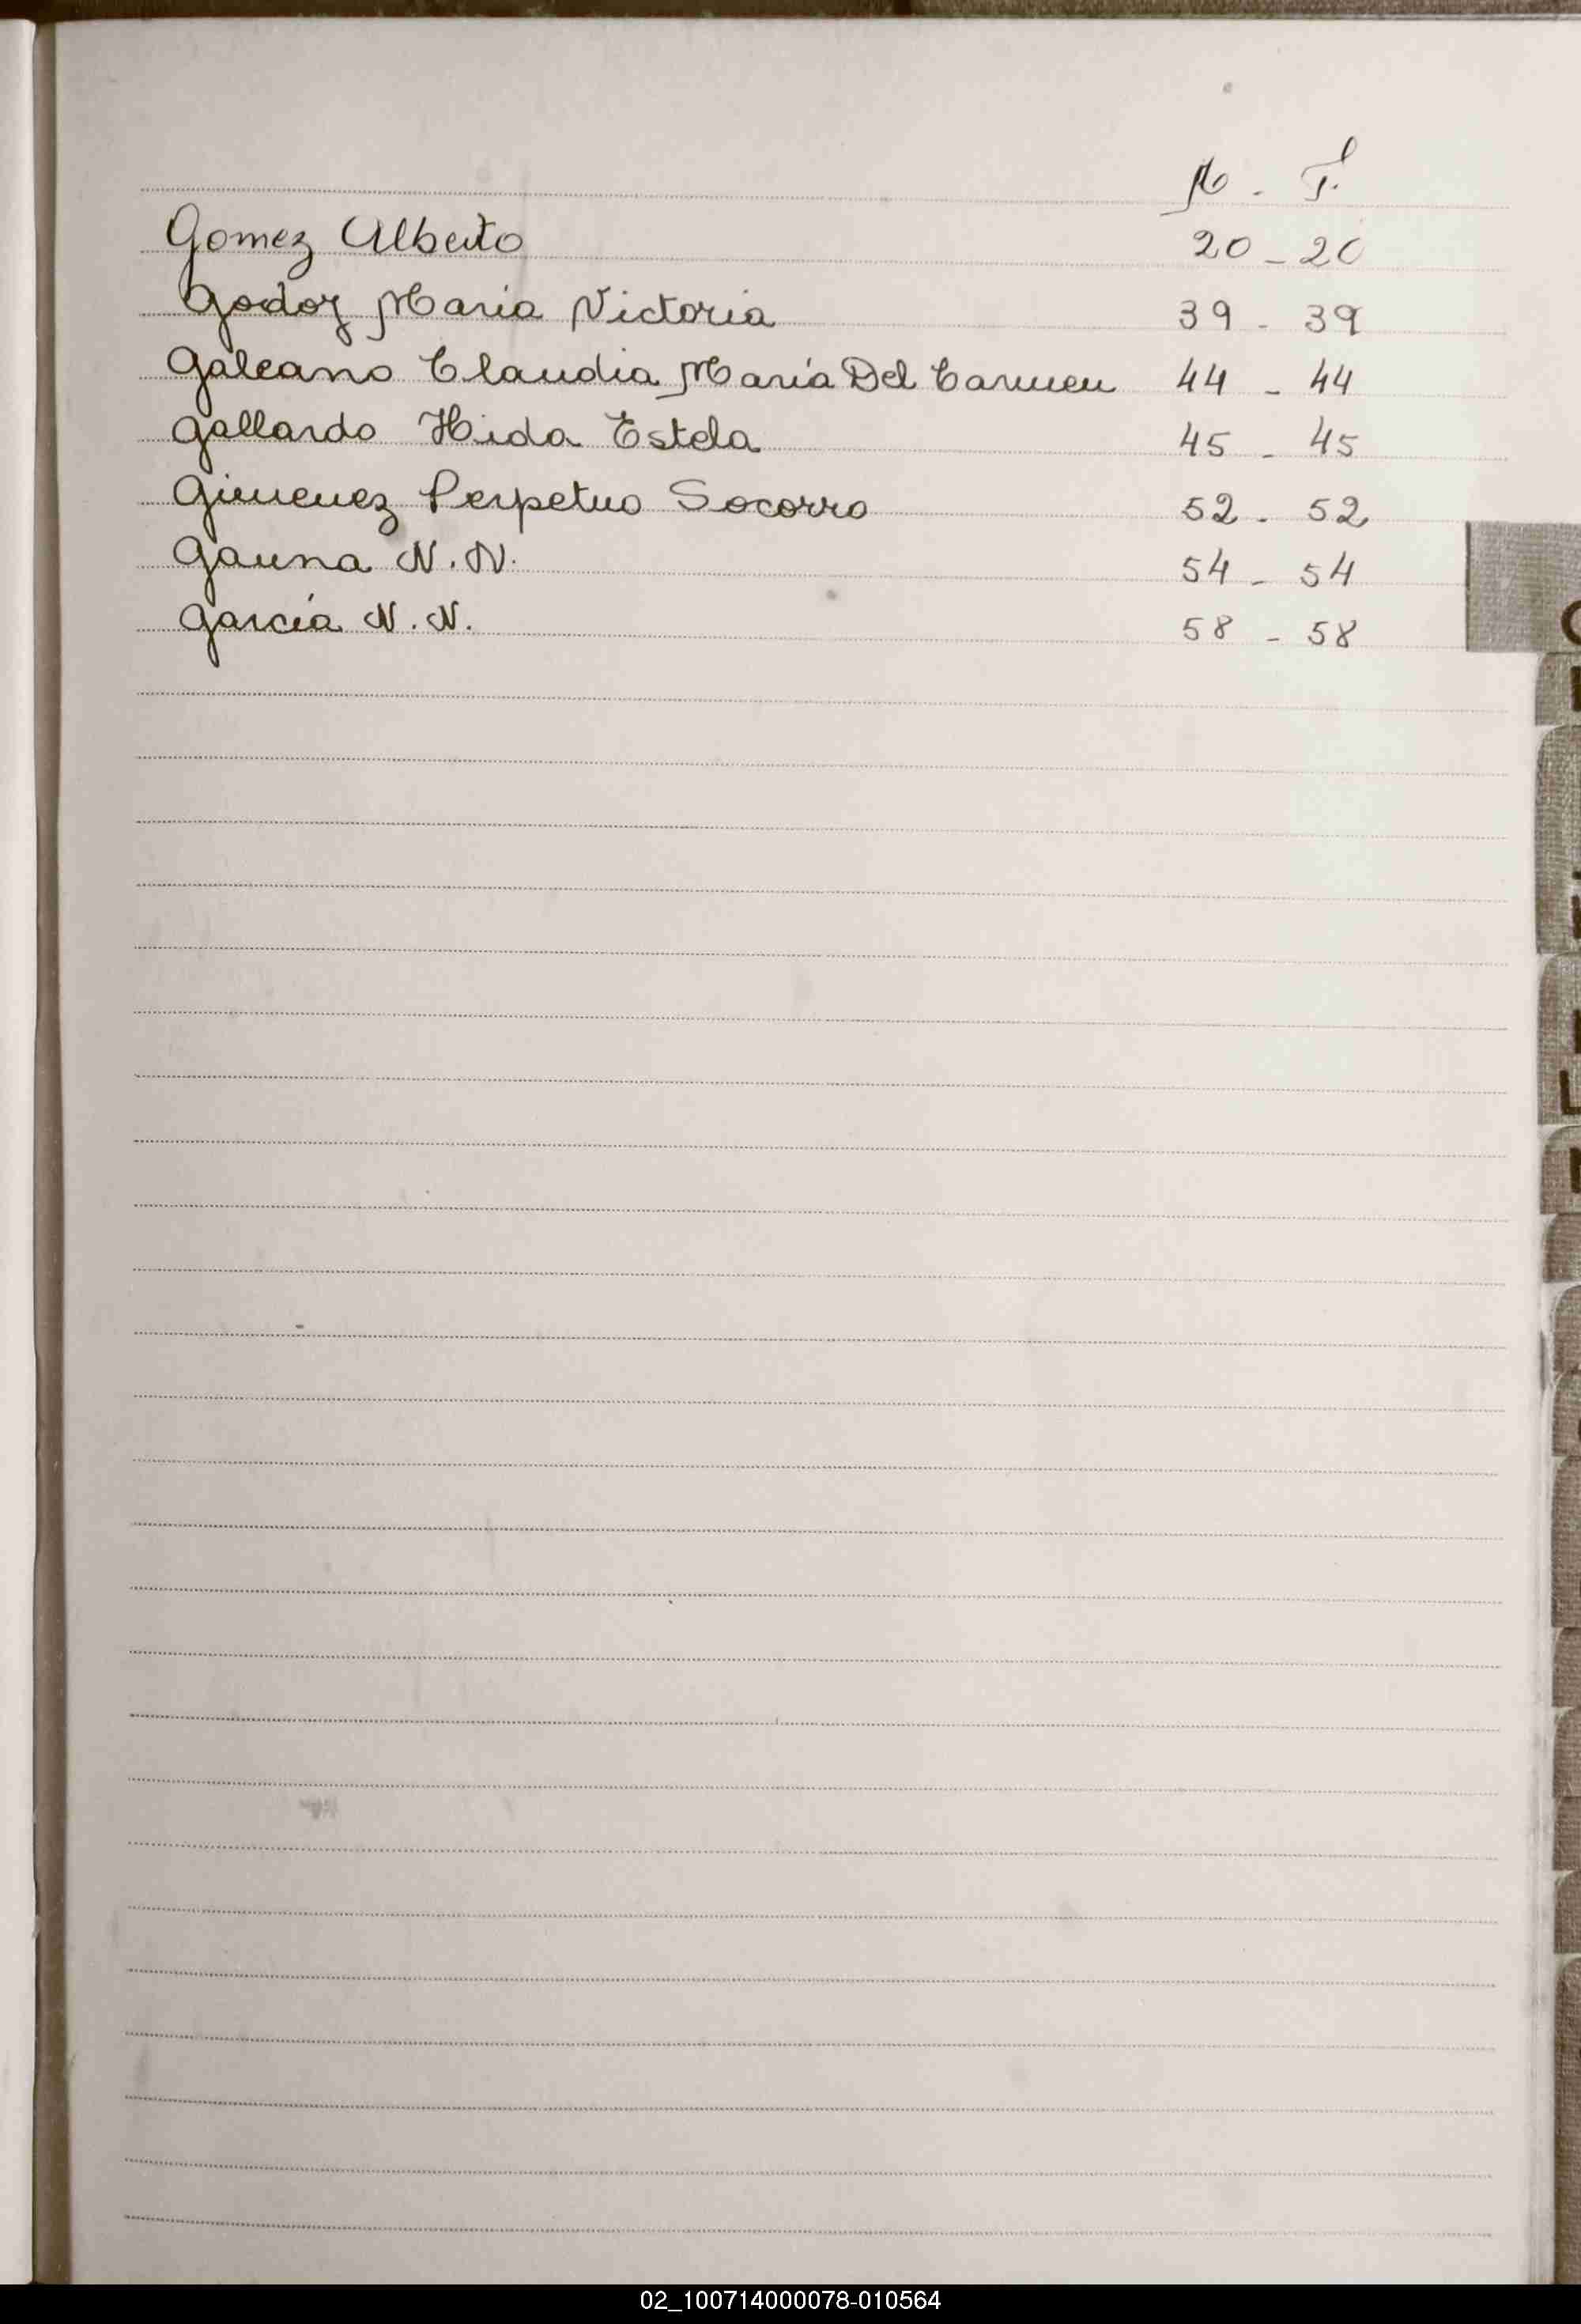 Nº - Fº
Gomez Alberto 20 - 20
Godoy Maria Victoria 39 - 39
Galeano Claudia María Del Carmen 44 - 44
Gallardo Hida Estela 45 - 45
Gimenez Perpetuo Socorro 52 - 52
Gauna N. N. 54 - 54
García N. N. 58 - 58
02_100714000078-010564